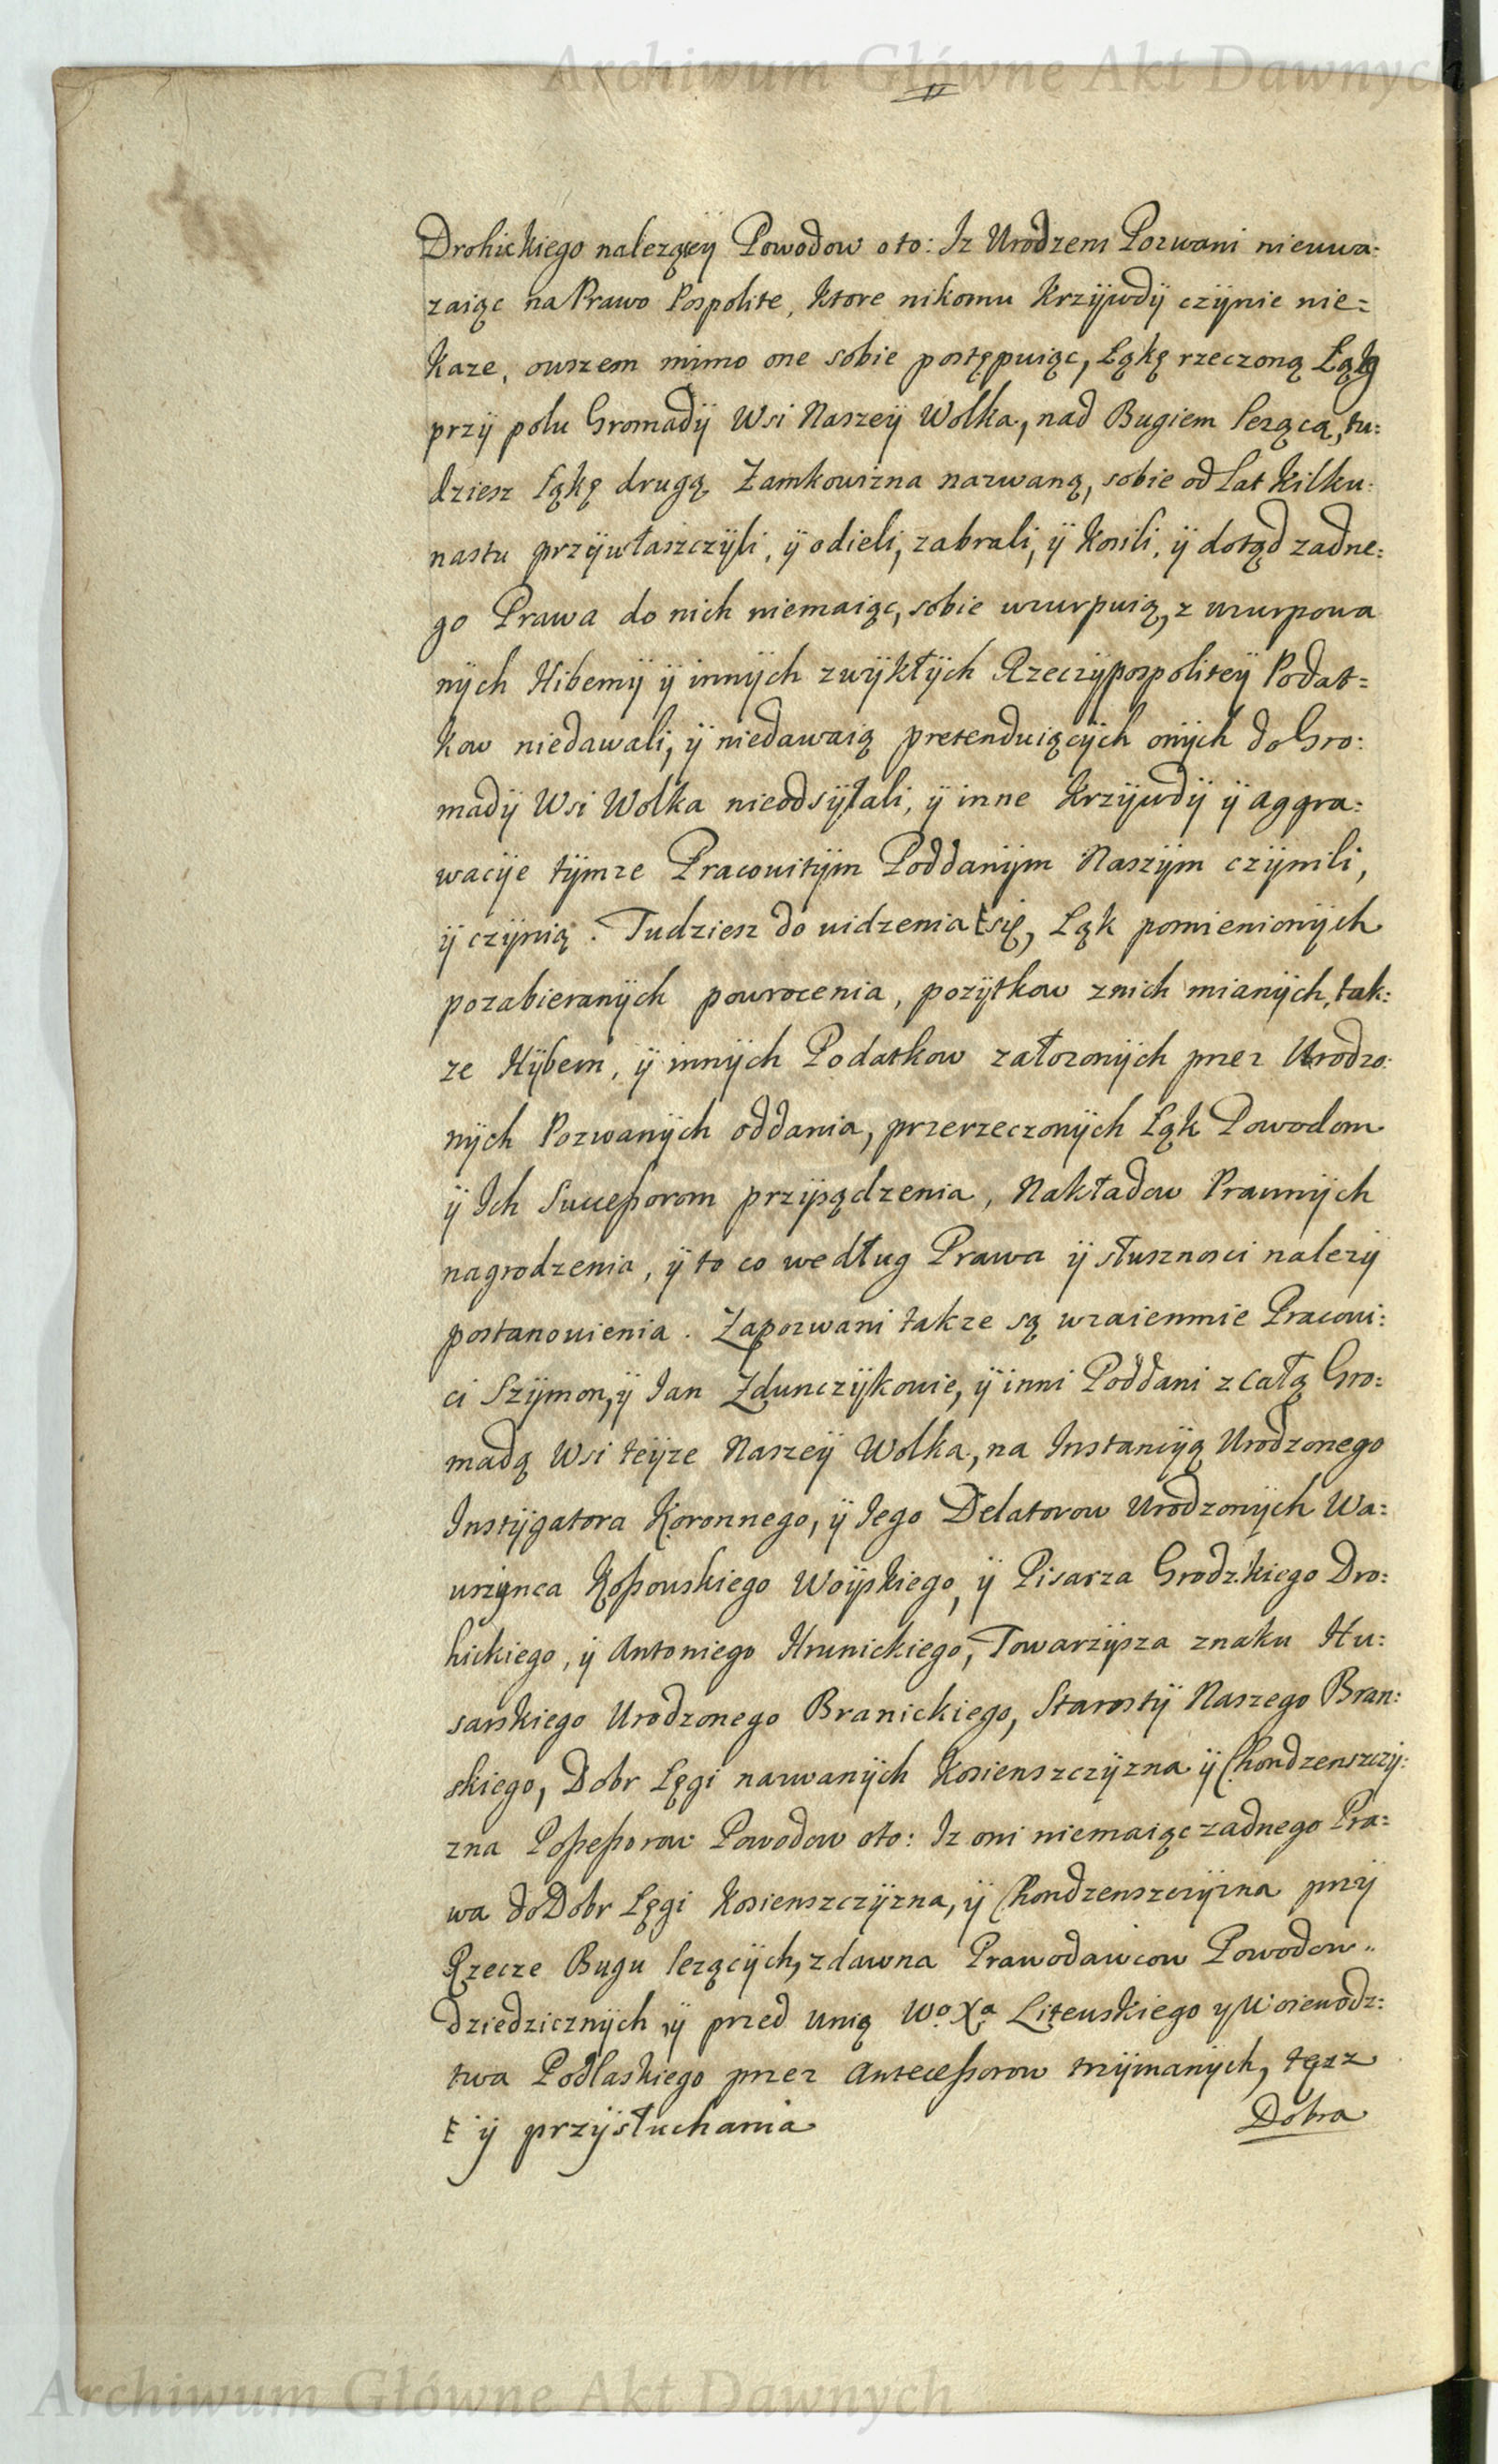 Archiwum Główne Akt Dawnych
Drohickiego nalezącÿ Powodow oto: Iz Urodzeni Pozwani nieuwa:
zaiąc na Prawo Pospolite, ktore nikomu Krzÿwdÿ czÿnic nie=
kaze, owszem mimo one sobie postępuiąc, Łąkę rzeczoną Łąkę
przÿ polu Gromadÿ Wsi Naszeÿ Wolka, nad Bugiem lezącą, tu:
dziesz łąkę drugą Zamkowizna nazwaną, sobie od lat kilku:
nastu przÿwłaszczÿli, ÿ odieli, zabrali, ÿ kosili, ÿ dotąd zadne:
go Prawa do nich niemaiąc, sobie uzurpuią, z uzurpowa
nÿch Hibernÿ ÿ innÿch zwÿkłÿch Rzeczÿpospoliteÿ Podat=
kow niedawali, ÿ niedawaią pretenduiącÿch onÿch do Gro:
madÿ Wsi Wolka nieodsÿłali, ÿ inne Krzÿwdÿ ÿ aggra:
wacÿe tÿmze Pracowitÿm Poddanÿm Naszÿm czÿnili,
ÿ czÿnią. Tudziesz do widzenia ŧ się, Łąk pomienionÿch
pozabieranÿch powrocenia, pozÿtkow znich mianÿch, tak:
ze Hÿbern, ÿ innÿch Podatkow załozonÿch przez Urodzo:
nÿch Pozwanÿch oddania, przerzeczonÿch Łąk Powodom
ÿ Ich Successorom przÿsądzenia, Nakładow Prawnÿch
nagrodzenia, ÿ to co według Prawa ÿ słusznosci nalezÿ
postanowienia. Zapozwani takze są wzaiemnie Pracowi:
ci Szÿmon, ÿ Ian Zdunczÿkowie, ÿ inni Poddani z całą Gro:
madą Wsi teÿze Naszeÿ Wolka, na Instancÿą Urodzonego
Instÿgatora Koronnego, ÿ Iego Delatorow Urodzonÿch Wa:
wrzÿnca Kossowskiego Woÿskiego, ÿ Pisarza Grodzkiego Dro:
hickiego, ÿ Antoniego Hrunickiego, Towarzÿsza znaku Hu:
sarskiego Urodzonego Branickiego, Starostÿ Naszego Bran:
skiego, Dobr Łęgi nazwanÿch Kosienszczÿzna ÿ Chondzenszczÿ:
zna Possessorow Powodow oto: Iz oni niemaiąc zadnego Pra:
wa do Dobr Łęgi Kosienszczÿzna, ÿ Chondzenszczÿzna przÿ
Rzecze Bugu lezącÿch, zdawna Prawodawcow Powodow
dziedzicznÿch ÿ przed Unią Wo Xa Litewskiego y Woiewodz:
twa Podlaskiego przez Antecessorow trzÿmanÿch, tęzz
ŧ ÿ przÿsłuchania Dobra
Archiwum Główne Akt Dawnych